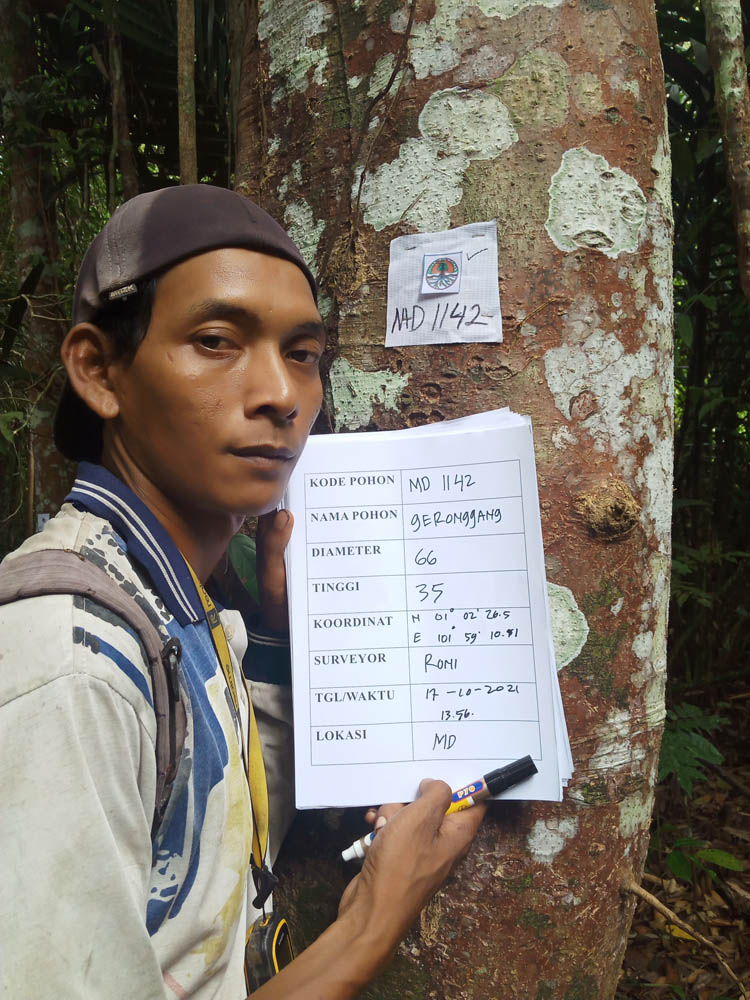 MD 1142
KODE POHON MD 1142
NAMA POHON gERONggANg
DIAMETER 66
TINGGI 35
KOORDINAT N 01° 02' 26.5
E 101° 59' 10.81
SURVEYOR RONI
TGL/WAKTU 17-10-2021
13.56.
LOKASI MD